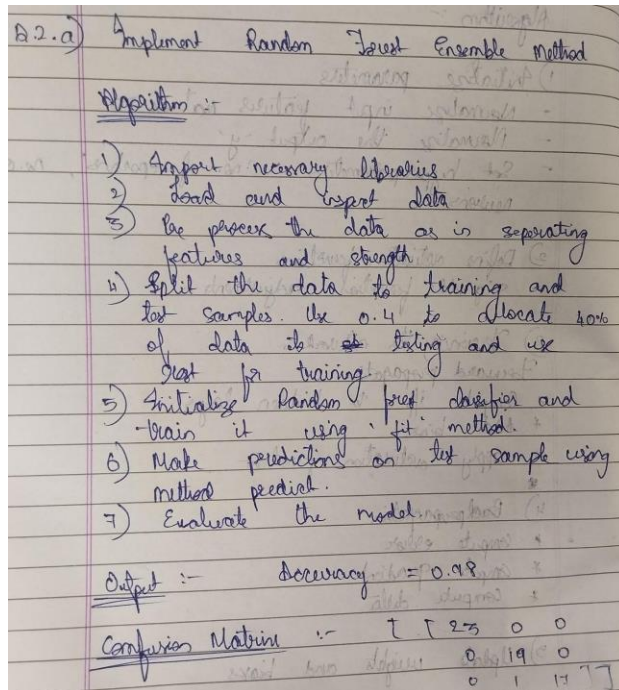 Q.2.a) Implement Random Forest Ensemble Method
Algorithm :-
1) Import necessary libraries
2) Load and inspect data
3) Pre process the data as in seperating
features and strength
4) Split the data to training and
test samples. Use 0.4 to allocate 40%
of data to testing and use
rest for training
5) Initialize Random forest classifier and
train it using 'fit' method.
6) Make predictions on test sample using
method predict.
7) Evaluate the model.
Output :- Accuracy = 0.98
Confusion Matrix :- [ [ 23 0 0
0 19 0
0 1 17 ] ]